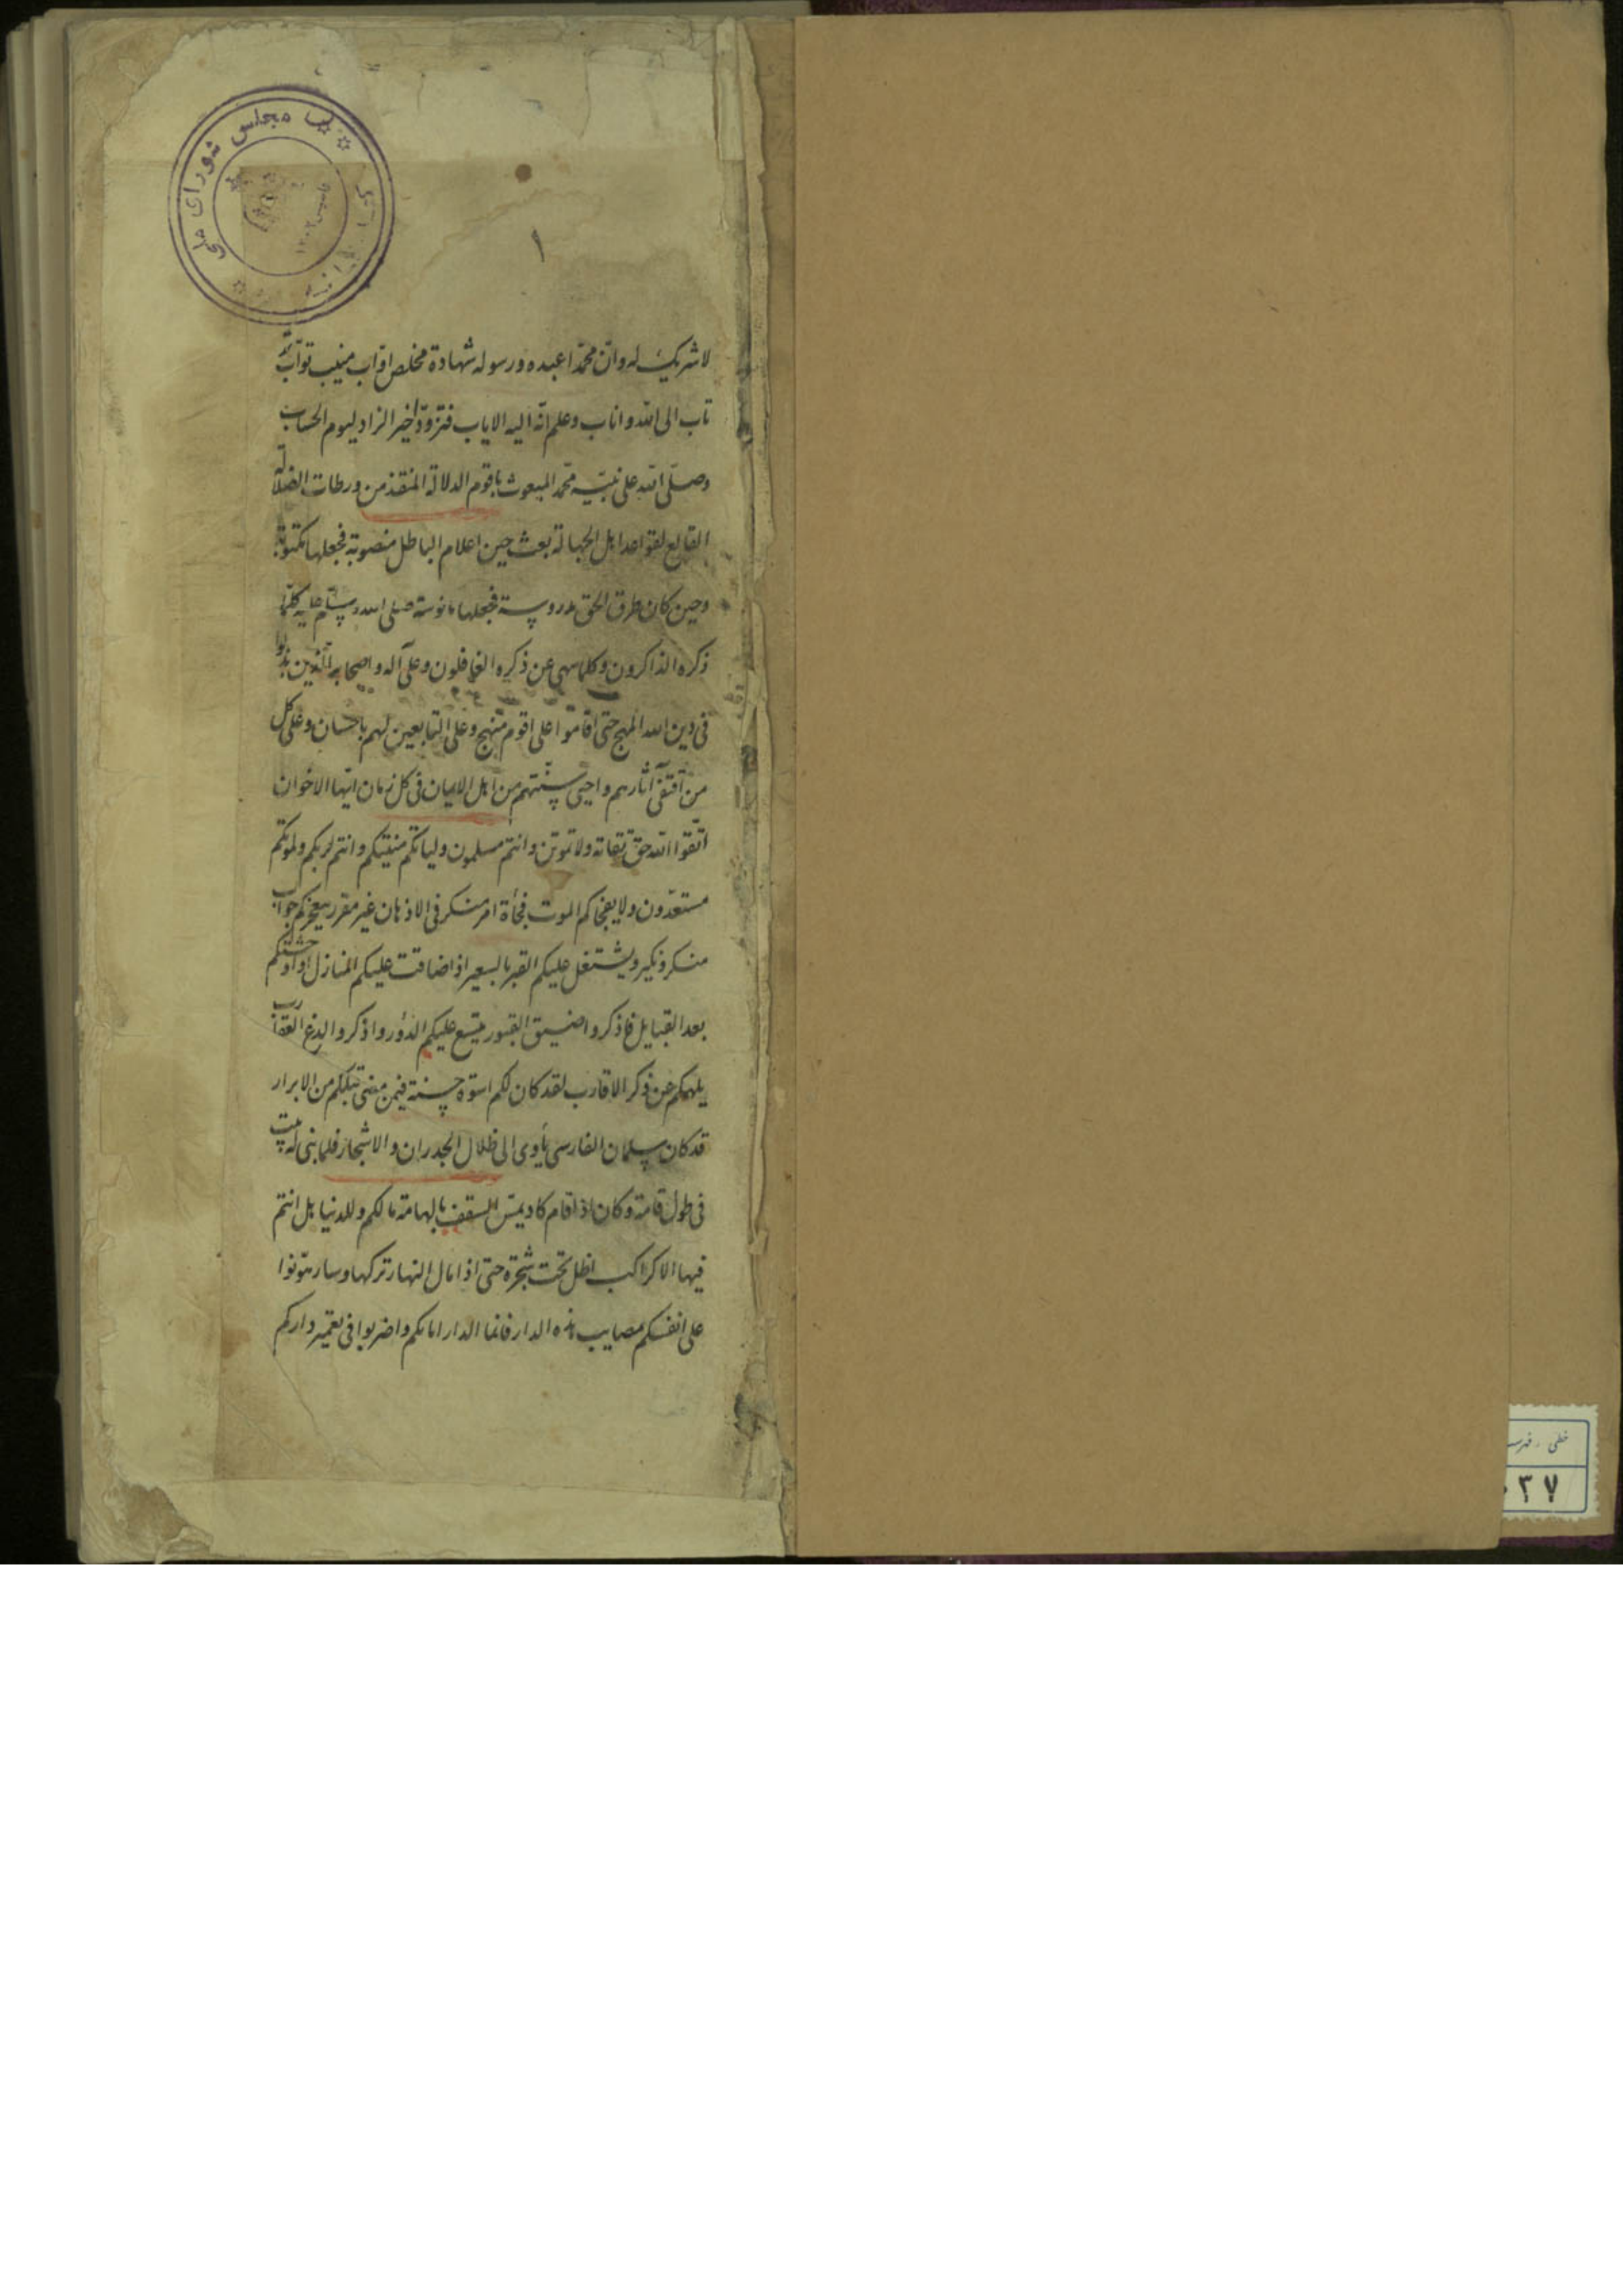 ١
لا شريك له وانّ محمّدا عبده ورسوله شهادة مخلص اوّاب منيب توّاب
تاب الى الله واناب وعلم انّه اليه الاياب فتزوّد خير الزاد ليوم الحساب
وصلّى الله على نبيّه محمّد المبعوث باقوم الدلالة المنقذ من ورطات الضلالة
القالع لقواعد اهل الجهالة بعث حين اعلام الباطل منصوبة فجعلها مكبوبة
وحين كان طرق الحق مدروسة فجعلها مانوسة صلى الله وسلّم عليه كلّما
ذكره الذاكرون وكلما سهى عن ذكره الغافلون وعلى آله واصحابه الّذين بذلوا
فى دين الله المهج حتى اقاموا على اقوم منهج وعلى التابعين لهم باحسان وعلى كل
من اقتفى آثارهم واحيى سنّتهم من اهل الايمان فى كل زمان ايّها الاخوان
اتّقوا الله حق تقاته ولا تموتن وانتم مسلمون ولياتكم منيّتكم وانتم لربكم ولموتكم
مستعدّون ولا يفجاكم الموت فجأة امر منكر فى الاذهان غير مقرر يعجزكم جواب
منكر ونكير ويشتغل عليكم القبر بالسعير اذا ضاقت عليكم المنازل او اوحشتكم
بعد القبايل فاذكروا ضيق القبور يتسع عليكم الدور واذكروا لدغ العقارب
يلهكم عن ذكر الاقارب لقد كان لكم اسوة حسنة فيمن مضى قبلكم من الابرار
قد كان سلمان الفارسى يأوى الى ظلال الجدران والاشجار فلما بنى له بيت
فى طول قامته وكان اذا قام كاد يمسّ السقف بالهامة مالكم وللدنيا بل انتم
فيها الا كراكب اظل تحت شجرة حتى اذا مال النهار تركها وسار هوّنوا
على انفسكم مصايب هذه الدار فانما الدار امامكم واضربوا فى تعمير داركم
مجلس شوراى ملى
خطى
٣٧